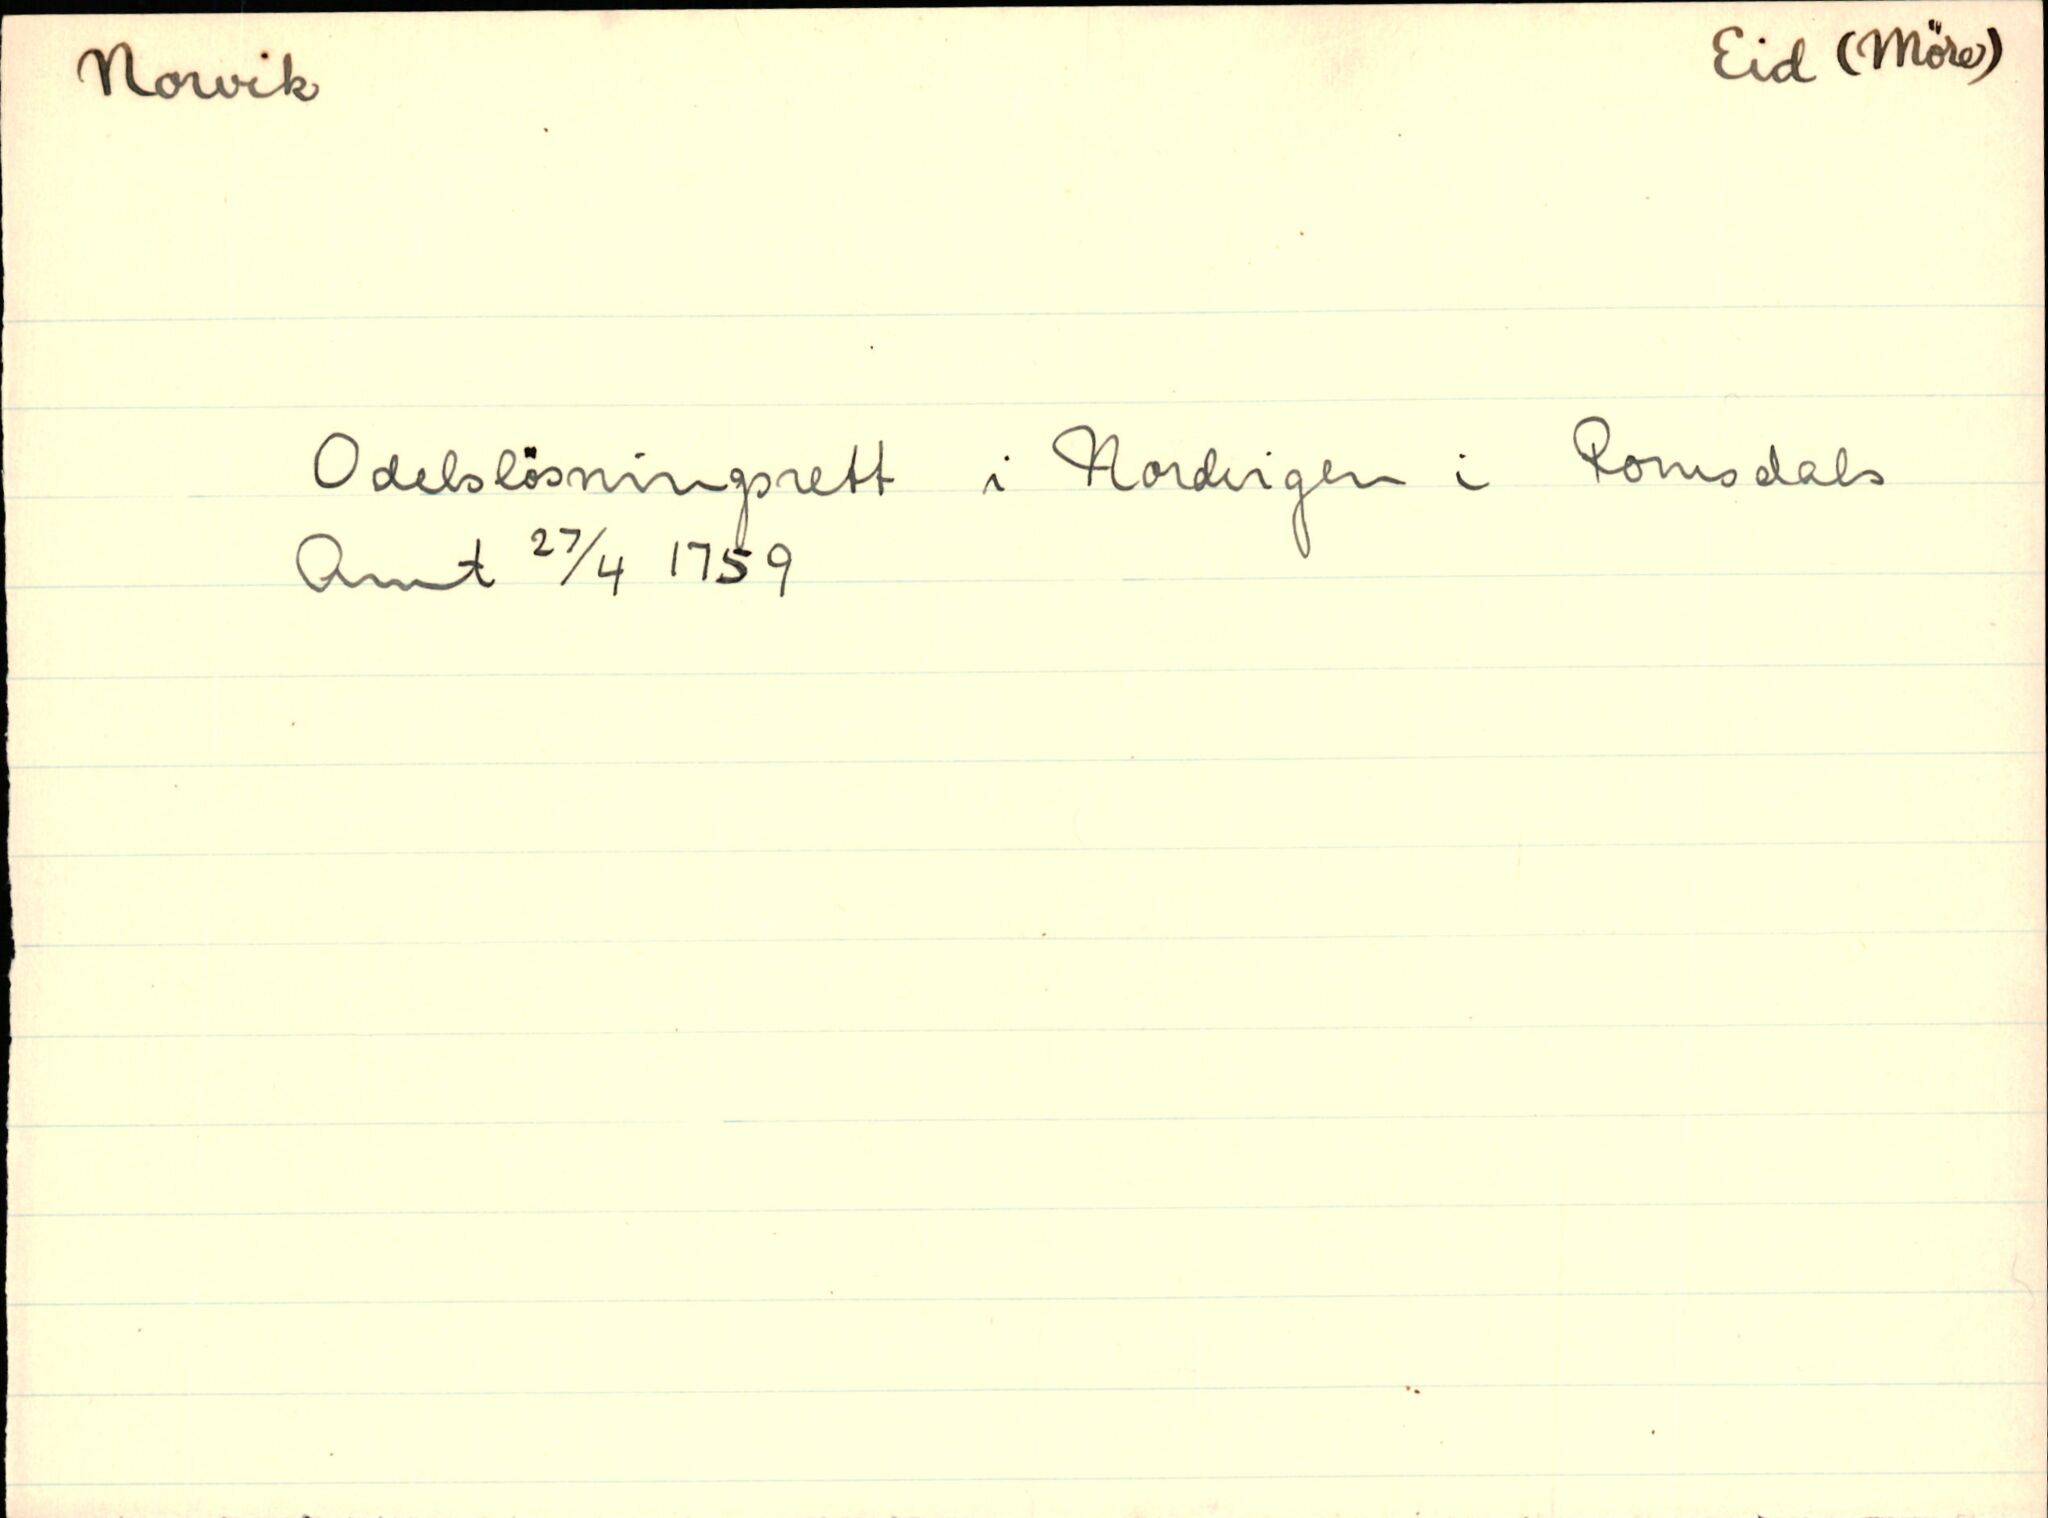 Norvik
Eid (Möre)
Odelslösningsrett i Nordvigen i Romsdals
Amt 27/4 1759